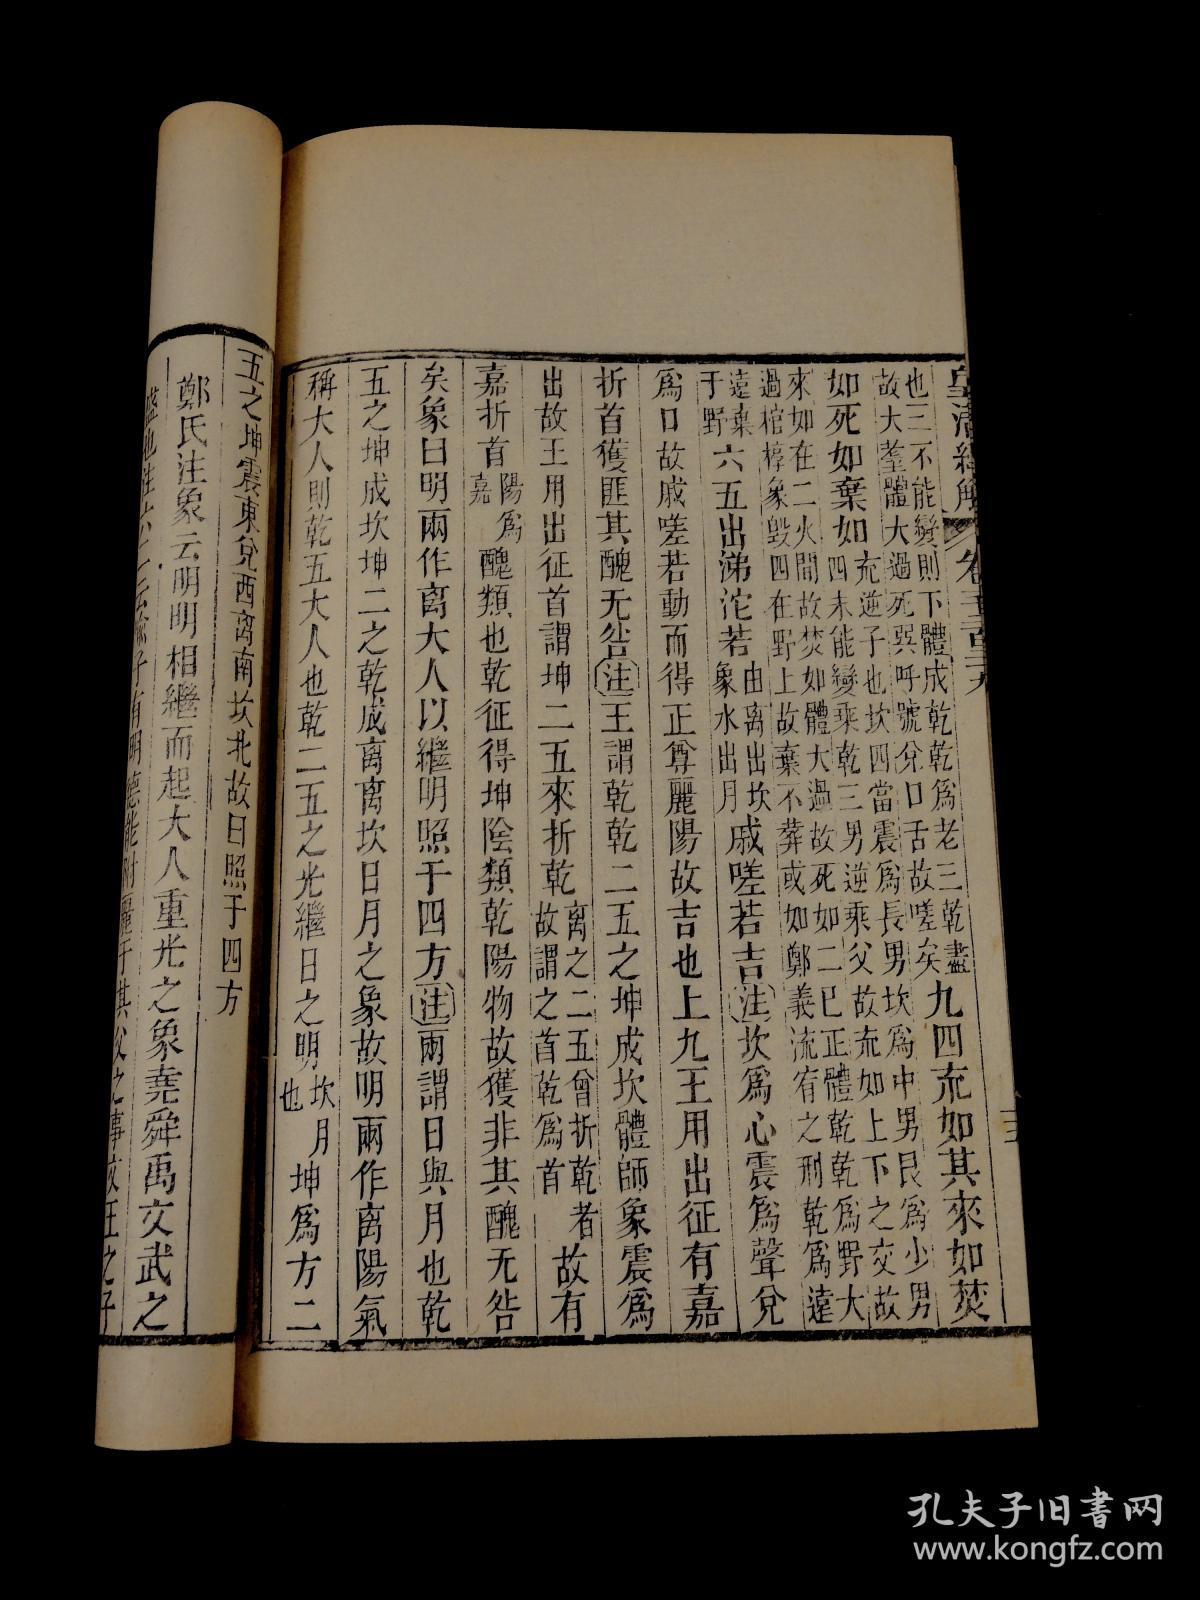 皇清經解
也三不能變則下體成乾乾爲老三乾盡
故大耋體大過死巛呼號兌口舌故嗟矣
九四㐬如其來如焚
如死如棄如
充逆子也坎四當震爲長男坎爲中男艮爲少男
四未能變乘乾三男逆乘父故㐬如上下之交故
來如在二火間故焚如體大過故死如二已正體乾乾爲野大
過棺椁象毀四在野上故棄不葬或如鄭義流宥之刑乾爲遠
遠棄
于野
六五出涕沱若
由离出坎
象水出月
戚嗟若吉注坎爲心震爲聲兌
爲口故戚嗟若動而得正尊麗陽故吉也上九王用出征有嘉
折首獲匪其醜无咎注王謂乾乾二五之坤成坎體師象震爲
出故王用出征首謂坤二五來折乾
离之二五曾折乾者
故謂之首乾爲首
故有
嘉折首
陽爲
嘉
醜類也乾征得坤陰類乾陽物故獲非其醜无咎
矣象曰明兩作离大人以繼明照于四方注兩謂日與月也乾
五之坤成坎坤二之乾成离离坎日月之象故明兩作离陽氣
稱大人則乾五大人也乾二五之光繼日之明
坎月
也
坤爲方二
五之坤震東兌西离南坎北故曰照于四方
鄭氏注象云明明相繼而起大人重光之象堯舜禹文武之
盛也注
子有明德能附麗于其父之